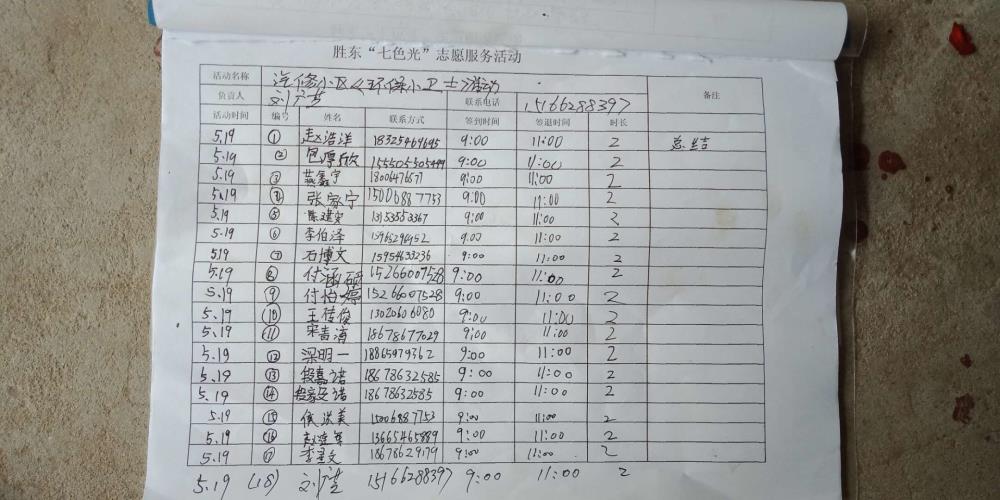 胜东“七色光”志愿服务活动
活动名称 汽修小区《环保小卫士》活动 备注
负责人 刘芳 联系电话 15166288397
活动时间 编号 姓名 联系方式 签到时间 签退时间 时长
5.19 ① 赵浩洋 18325469695 9:00 11:00 2 总结
5.19 ② 包厚欣 9:00 11:00 2
5.19 ③ 9:00 11:00 2
5.19 ④ 张家宁 15006887753 9:00 11:00 2
5.19 ⑤ 陈建安 13153553367 9:00 11:00 2
5.19 ⑥ 李伯泽 9:00 11:00 2
5.19 ⑦ 石博文 15954633236 9:00 11:00 2
5.19 ⑧ 付涵硕 15266007528 9:00 11:00 2
5.19 ⑨ 付怡婷 15266007528 9:00 11:00 2
5.19 ⑩ 王桂俊 13020606080 9:00 11:00 2
5.19 ⑪ 宋 18678677029 9:00 11:00 2
5.19 ⑫ 梁明一 18865979362 9:00 11:00 2
5.19 ⑬ 段嘉诺 18678632585 9:00 11:00 2
5.19 ⑭ 18678632585 9:00 11:00 2
5.19 ⑮ 侯洪美 15006887753 9:00 11:00 2
5.19 ⑯ 赵连军 13665465889 9:00 11:00 2
5.19 李圣文 18678629179 9:00 11:00 2
5.19 (18) 15166288397 9:00 11:00 2